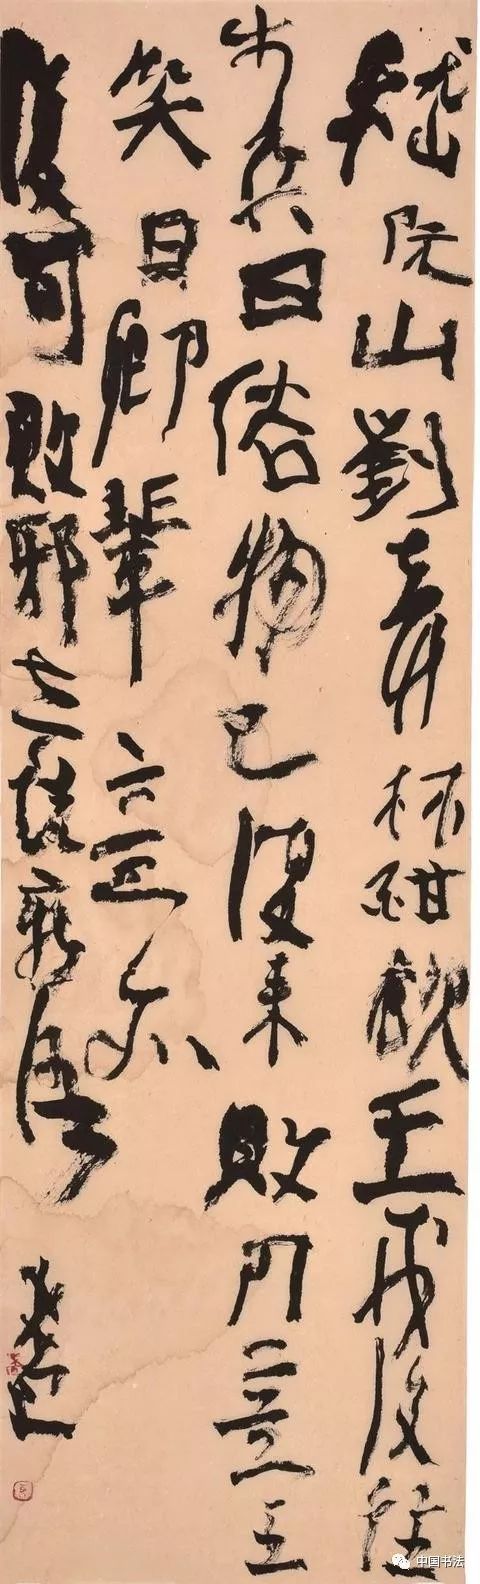 嵇阮山劉在竹林酣飲王戎後往
步兵曰俗物已復來敗人意王
笑曰卿輩意亦
復可敗邪世說新語
中国书法